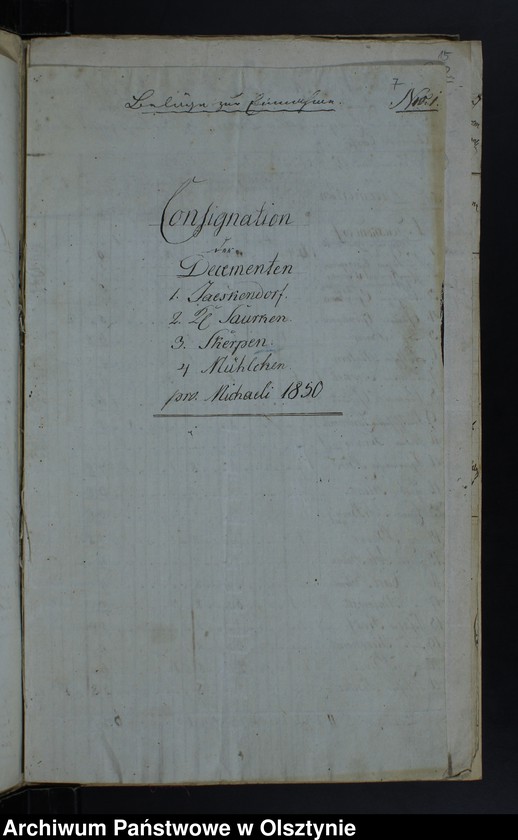 15
7
Beläge zur Einnahme. No: 1.
Consignation
der
Decementen
1. Jaeskendorf.
2. Saurken.
3. Skerpen.
4 Mühlchen
pro. Michaeli 1850
Archiwum Państwowe w Olsztynie